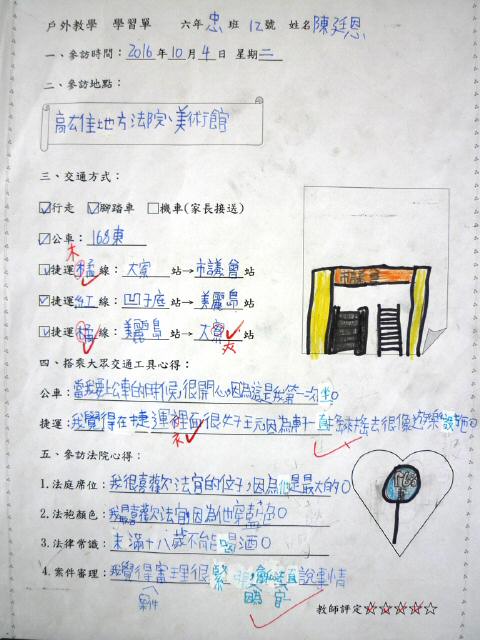 戶外教學 學習單 六年忠班12號 姓名陳廷恩
一、參訪時間：2016年10月4日 星期二
二、參訪地點：
高雄地方法院、美術館
三、交通方式：
行走 腳踏車 機車(家長接送)
公車：168東
捷運橘線：大寮站→市議會站
捷運紅線：凹子底站→美麗島站
捷運橘線：美麗島站→大寮站
市議會
四、搭乘大眾交通工具心得：
公車：當我要上公車的時候,很開心,因為這是我第一次坐。
捷運：我覺得在捷運裡面很好玩因為車子一直搖來搖去很像遊樂設施。
五、參訪法院心得：
1.法庭席位：我很喜歡法官的位子,因為他是最大的。
2.法袍顏色：我最喜歡法官,因為他穿藍色。
3.法律常識：未滿十八歲不能喝酒。
4.案件審理：我覺得審理很緊 說事情
案件
教師評定